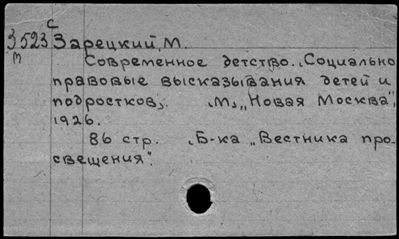 С
3523 Зарецкий, М.
м
Современное детство. Социально
правовые высказывания детей и
подростков. М., „Новая Москва",
1926.
86 стр. Б-ка „Вестника про-
свещения".